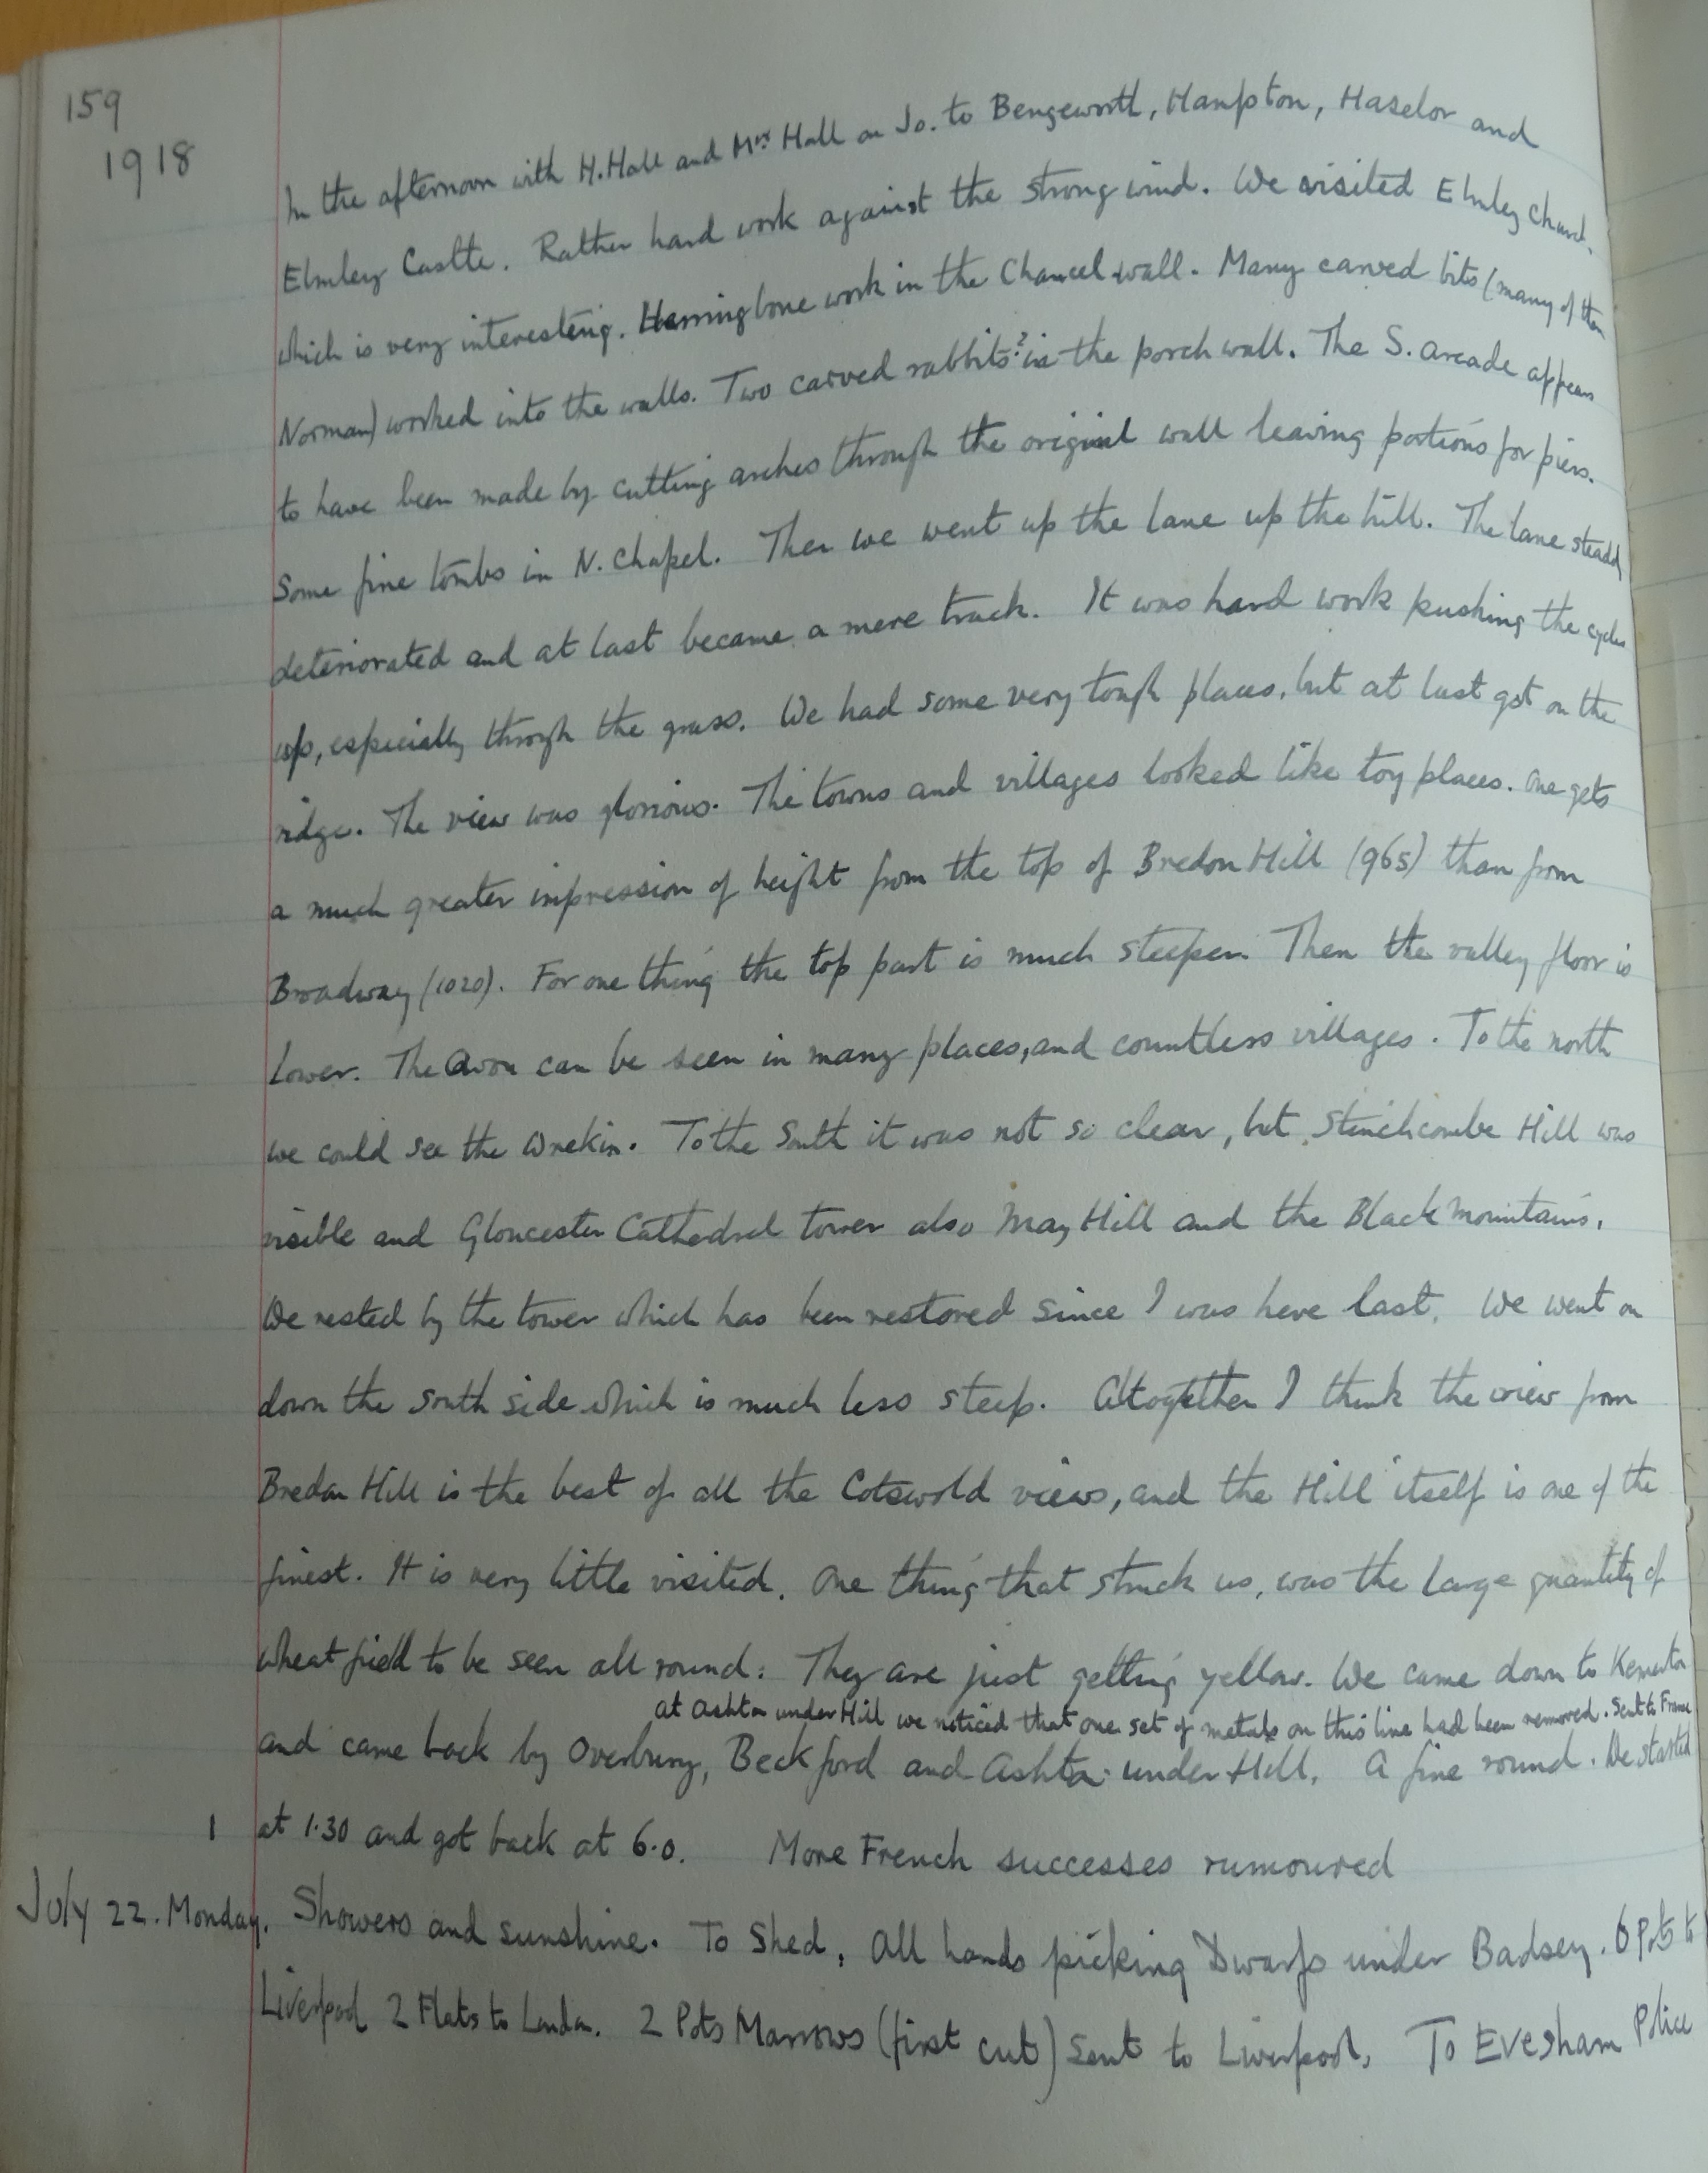 159
1918
In the afternoon with H. Hall and Mrs Hall on Jo. to Bengeworth, Hampton, Haselor and
Elmley Castle. Rather hard work against the strong wind. We visited Elmley Church.
which is very interesting. Herringbone work in the Chancel wall. Many carved bits (many of them
Norman) worked into the walls. Two carved rabbits? in the porch wall. The S. arcade appears
to have been made by cutting arches through the original wall leaving portions for piers.
Some fine tombs in N. Chapel. Then we went up the lane up the hill. The lane steadily
deteriorated and at last became a mere track. It was hard work pushing the cycles
up, especially through the grass. We had some very tough places, but at last got on the
ridge. The view was glorious. The towns and villages looked like toy places. One gets
a much greater impression of height from the top of Bredon Hill (965) than from
Broadway (1020). For one thing the top part is much steeper. Then the valley floor is
lower. The Avon can be seen in many places, and countless villages. To the north
we could see the Wrekin. To the South it was not so clear, but Stinchcombe Hill was
visible and Gloucester Cathedral tower also May Hill and the Black Mountains.
We rested by the tower which has been restored since I was here last. We went on
down the south side which is much less steep. Altogether I think the view from
Bredon Hill is the best of all the Cotswold views, and the Hill itself is one of the
finest. It is very little visited. One thing that struck us, was the large quantity of
wheat field to be seen all round: They are just getting yellow. We came down to Kemerton
at Ashton under Hill we noticed that one set of metals on this line had been removed. Sent to France
and came back by Overbury, Beckford and Ashton under Hill. A fine round. We started
1 at 1.30 and got back at 6.0. More French successes rumoured
July 22. Monday. Showers and sunshine. To Shed. All hands picking Dwarfs under Badsey. 6 Pots to
Liverpool 2 Flats to London. 2 Pots Marrows (first cut) sent to Liverpool. To Evesham Police